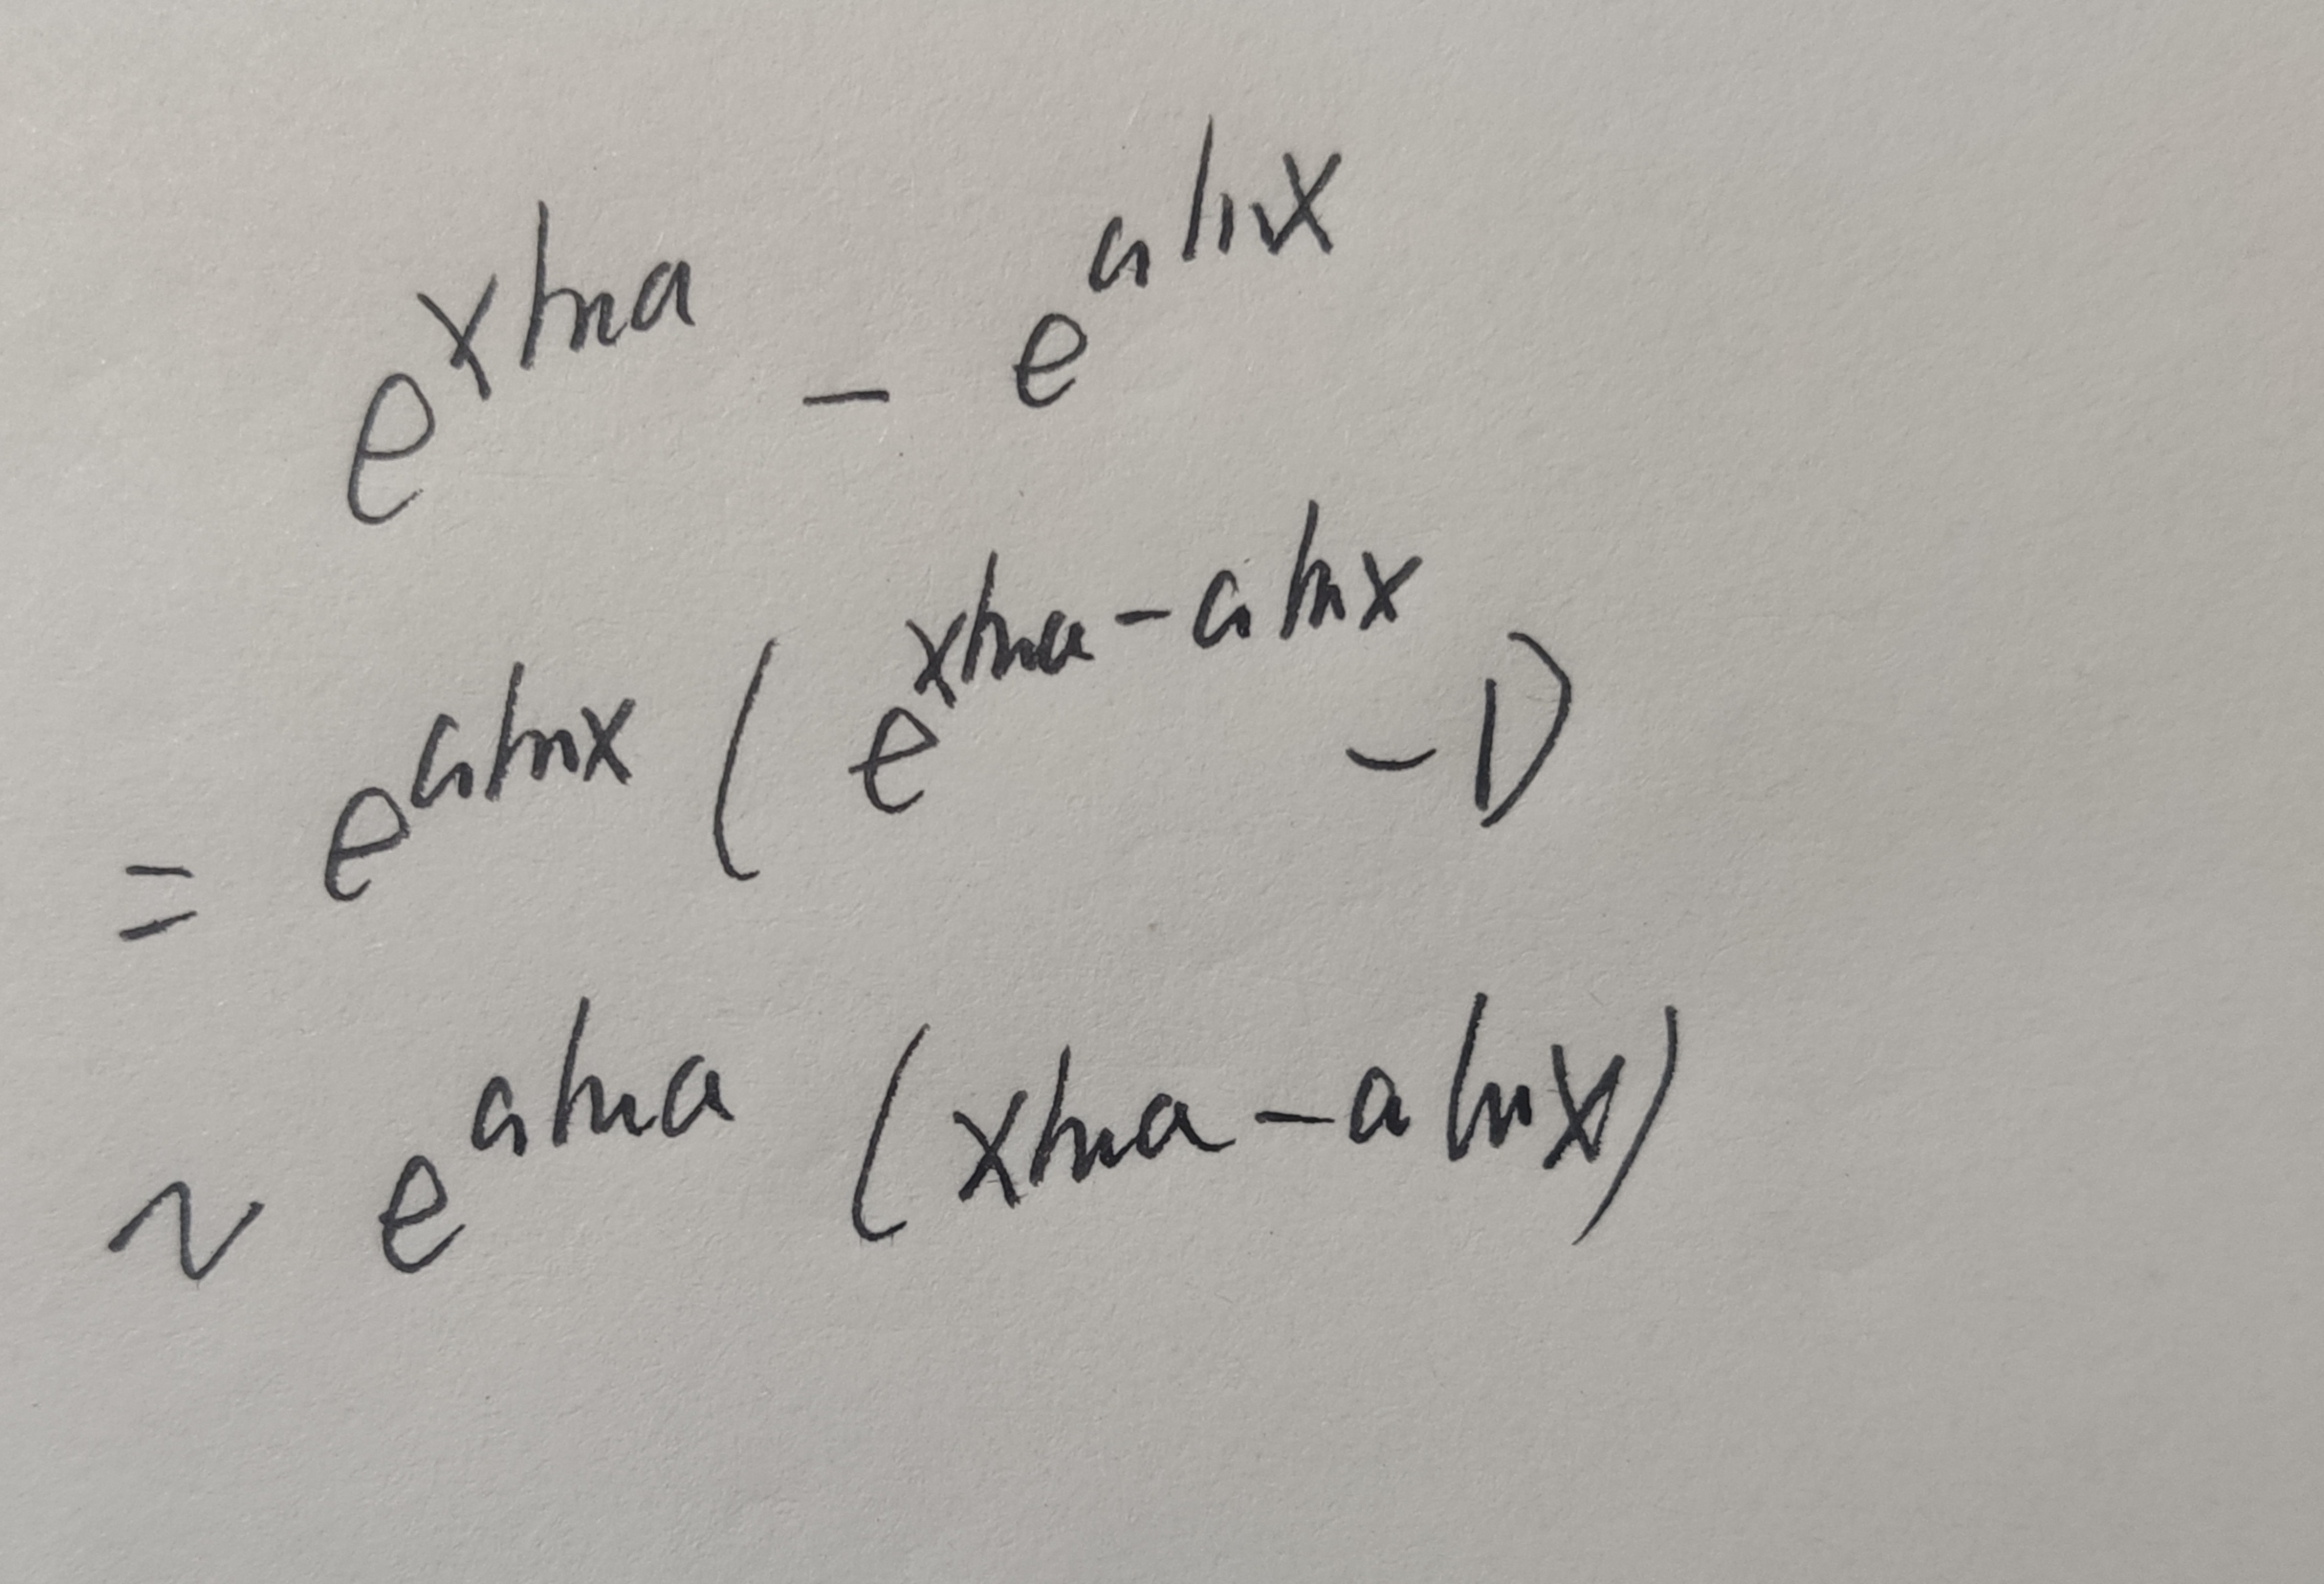 e^{x ln a} - e^{a ln x}
= e^{a ln x} ( e^{x ln a - a ln x} - 1)
~ e^{a ln a} (x ln a - a ln x)